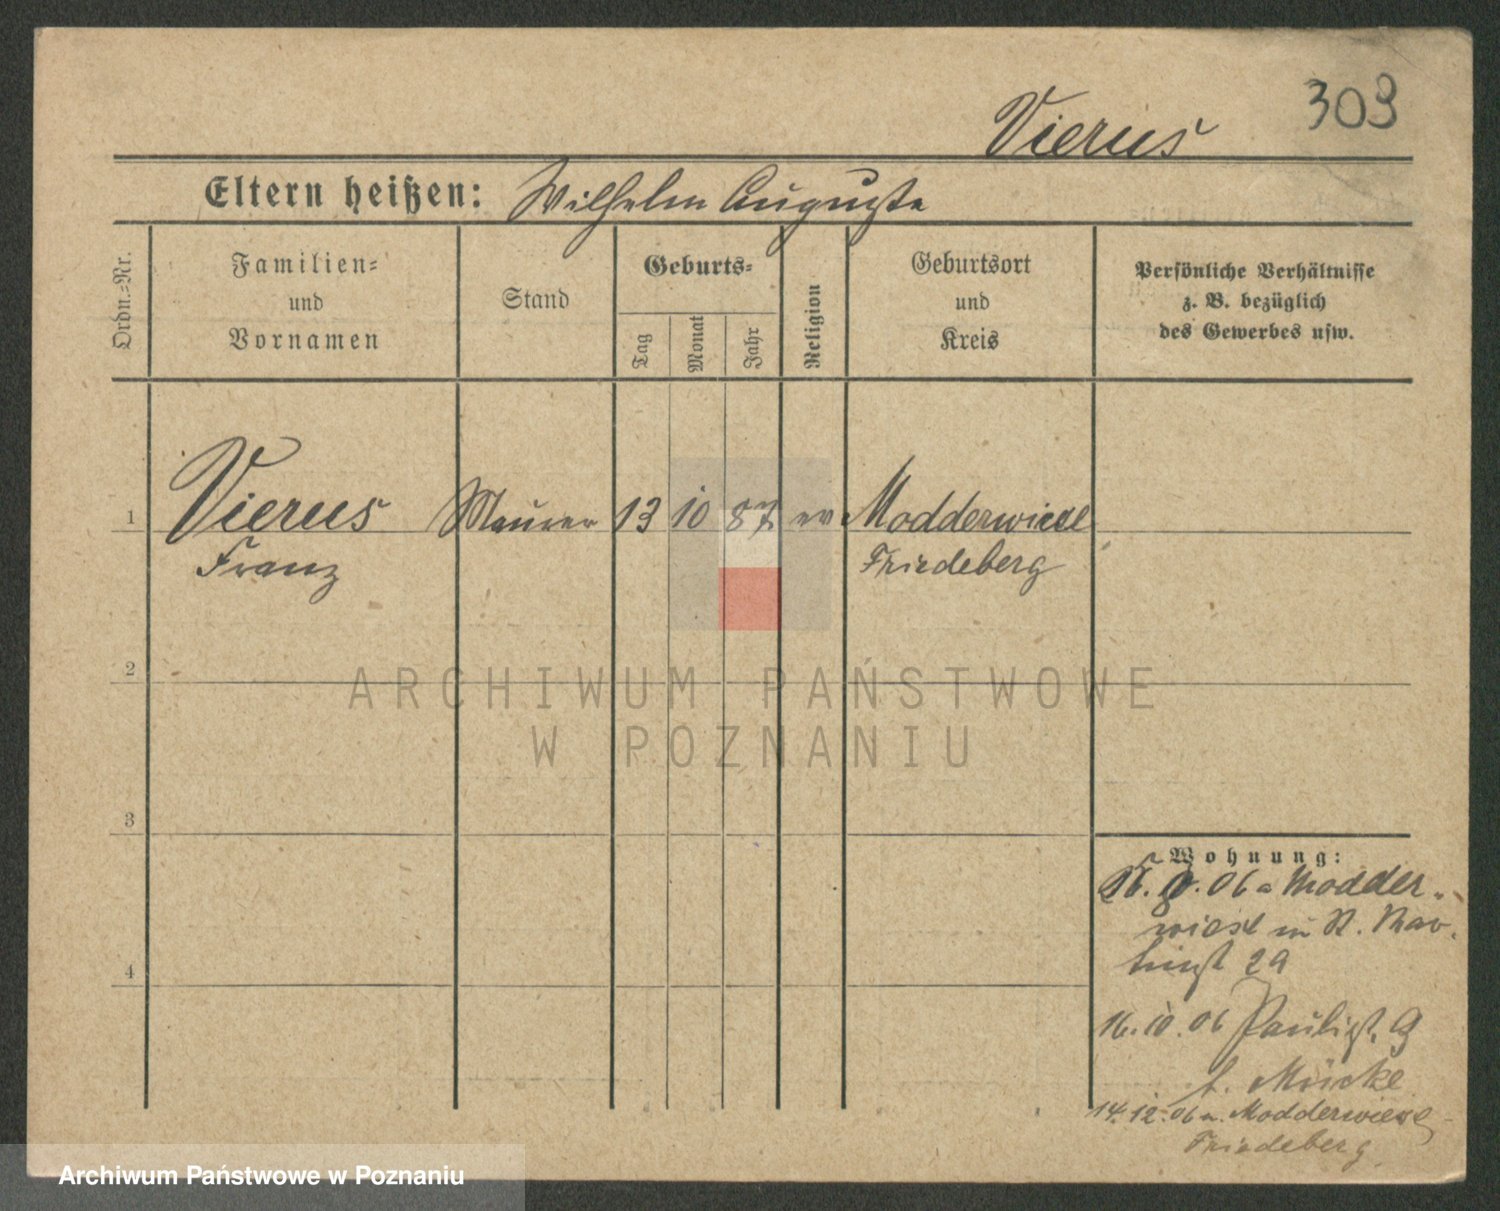 303
Vierus
Eltern heißen: Wilhelm Auguste
Ordn.-Nr.
Familien-
und
Vornamen
Stand
Geburts-
Tag
Monat
Jahr
Religion
Geburtsort
und
Kreis
Persönliche Verhältnisse
z. B. bezüglich
des Gewerbes usw.
1 Vierus Maurer 13 10 87 ev Modderwiese
Franz Friedeberg
2
ARCHIWUM PAŃSTWOWE
W POZNANIU
3
4
Wohnung:
06 a Modder-
wiese in
29
16.10.06 Paulist. 9
b. Mücke
14.12.06 n. Modderwiese
Friedeberg
Archiwum Państwowe w Poznaniu